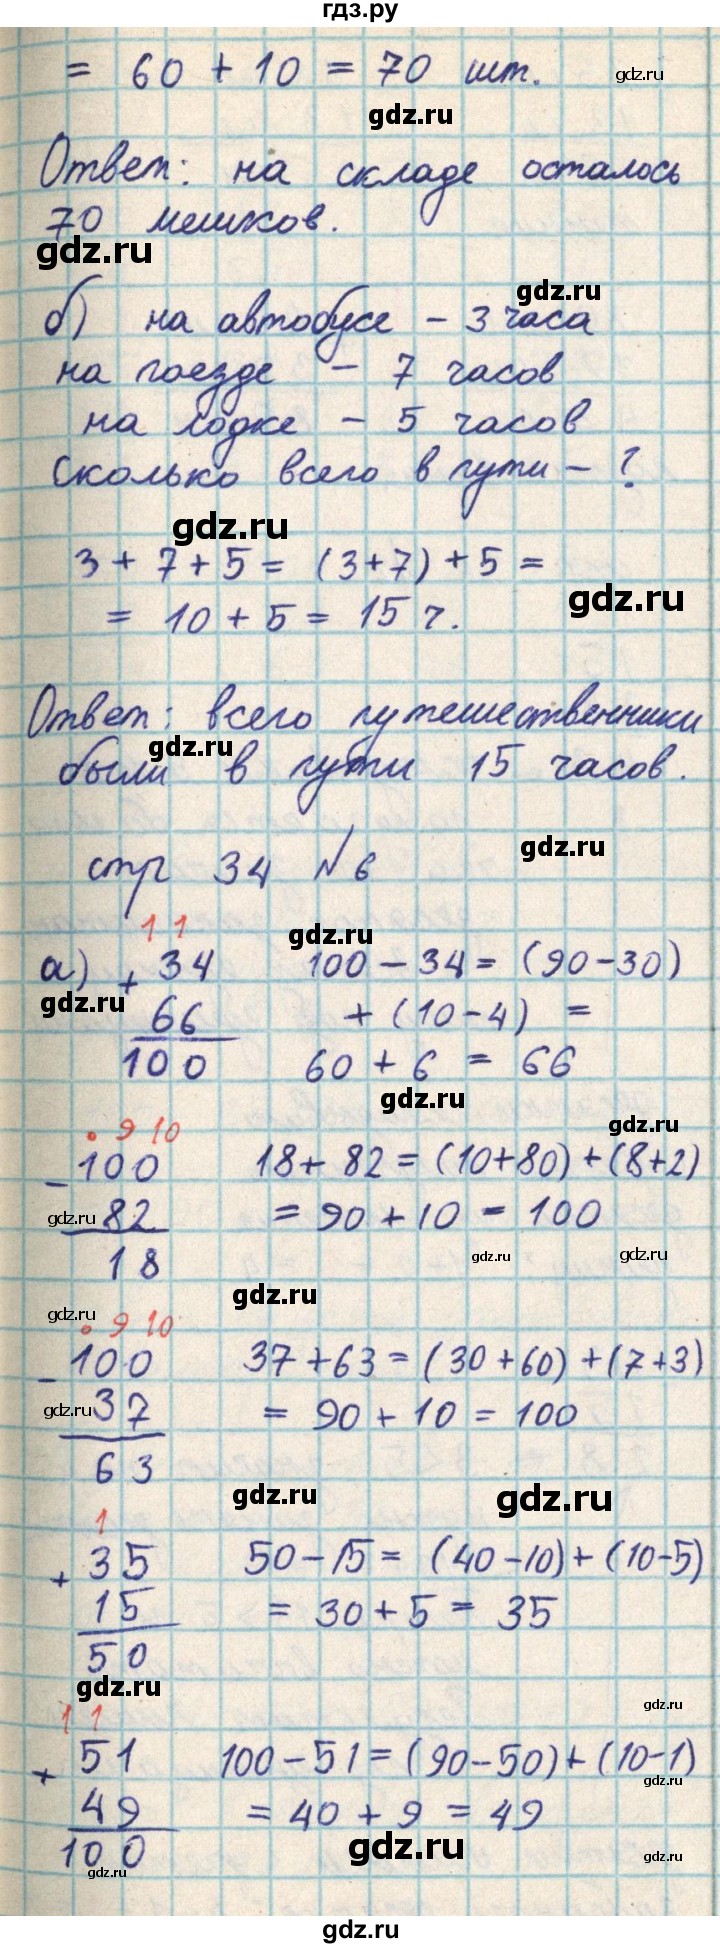 гдз.ру
= 60 + 10 = 70 шт.
gdz.ru
gdz.ru
Ответ: на складе осталось
70 мешков.
gdz.ru
gdz.ru
б) на автобусе – 3 часа
на поезде – 7 часов
на лодке – 5 часов
Сколько всего в пути – ?
gdz.ru
3 + 7 + 5 = (3+7) + 5 =
gdz.ru
= 10 + 5 = 15 ч.
Ответ: всего путешественники
gdz.ru
были в пути 15 часов.
gdz.ru
стр 34 №6
1 1
gdz.ru
а) + 34 100 – 34 = (90–30)
gdz.ru
66 + (10–4) =
100 60 + 6 = 66
gdz.ru
gdz.ru
• 9 10
– 100 18 + 82 = (10+80) + (8+2)
gdz.ru
82 = 90 + 10 = 100
18
gdz.ru
gdz.ru
gdz.ru
gdz.ru
• 9 10
– 100 37 + 63 = (30 + 60) + (7+3)
gdz.ru
37 = 90 + 10 = 100
63
gdz.ru
gdz.ru
1
+ 35 50 – 15 = (40–10) + (10–5)
15 = 30 + 5 = 35
50
gdz.ru
gdz.ru
1 1
+ 51 100 – 51 = (90–50) + (10–1)
gdz.ru
49 = 40 + 9 = 49
100
gdz.ru
gdz.ru
gdz.ru
gdz.ru